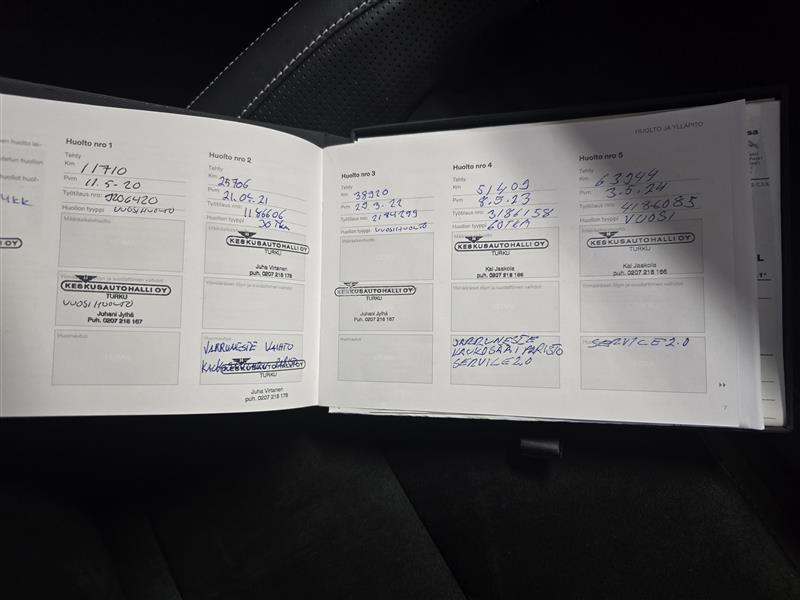 HUOLTO JA YLLÄPITO
Huolto nro 1
Tehty
Km 11710
Pvm 11.5-20
Työtilaus nro: 1206420
Huollon tyyppi VUOSIHUOLTO
Määräaikaishuolto
Ylimääräinen öljyn ja suodattimien vaihdot
KESKUSAUTOHALLI OY
TURKU
VUOSIHUOLTO
Juhani Jylhä
Puh. 0207 218 167
Huomautus
Huolto nro 2
Tehty
Km 25706
Pvm 21.04.21
Työtilaus nro: 1186606
Huollon tyyppi 30TKM
KESKUSAUTOHALLI OY
TURKU
Juha Virtanen
puh. 0207 218 178
Ylimääräinen öljyn ja suodattimien vaihdot
JARRUNESTE VAIHTO
KESKUSAUTOHALLI OY
TURKU
Juha Virtanen
puh. 0207 218 178
Huolto nro 3
Tehty
Km 38920
Pvm 29.3.22
Työtilaus nro: 2184299
Huollon tyyppi VUOSIHUOLTO
Määräaikaishuolto
KESKUSAUTOHALLI OY
TURKU
Juhani Jylhä
Puh. 0207 218 167
Huomautus
Huolto nro 4
Tehty
Km 51409
Pvm 8.5.23
Työtilaus nro: 3186158
Huollon tyyppi 60TKM
KESKUSAUTOHALLI OY
TURKU
Kai Jaskola
Puh. 0207 218 166
Ylimääräinen öljyn ja suodattimien vaihdot
JARRUNESTE
KAUKOSÄÄTI PARISTO
SERVICE 2.0
Huolto nro 5
Tehty
Km 63944
Pvm 3.5.24
Työtilaus nro: 4186085
Huollon tyyppi VUOSI
KESKUSAUTOHALLI OY
TURKU
Kai Jaskola
Puh. 0207 218 166
Ylimääräinen öljyn ja suodattimien vaihdot
SERVICE 2.0
7